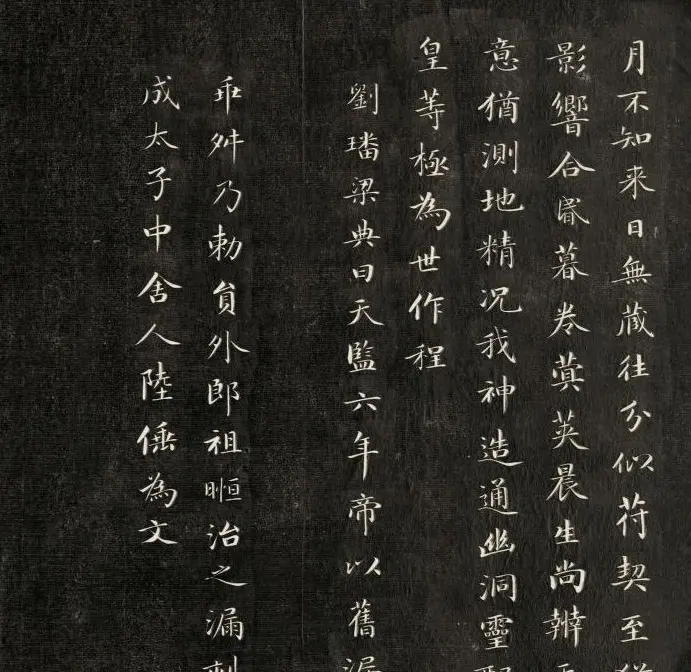 月不知來日無藏往分似荷契至
影響合昏暮卷蓂莢晨生尚辨
意猶測地精況我神造通幽洞靈
皇等極為世作程
劉璠梁典曰天監六年帝以舊漏
乖舛乃勅員外郎祖暅治之漏刻
成太子中舍人陸倕為文